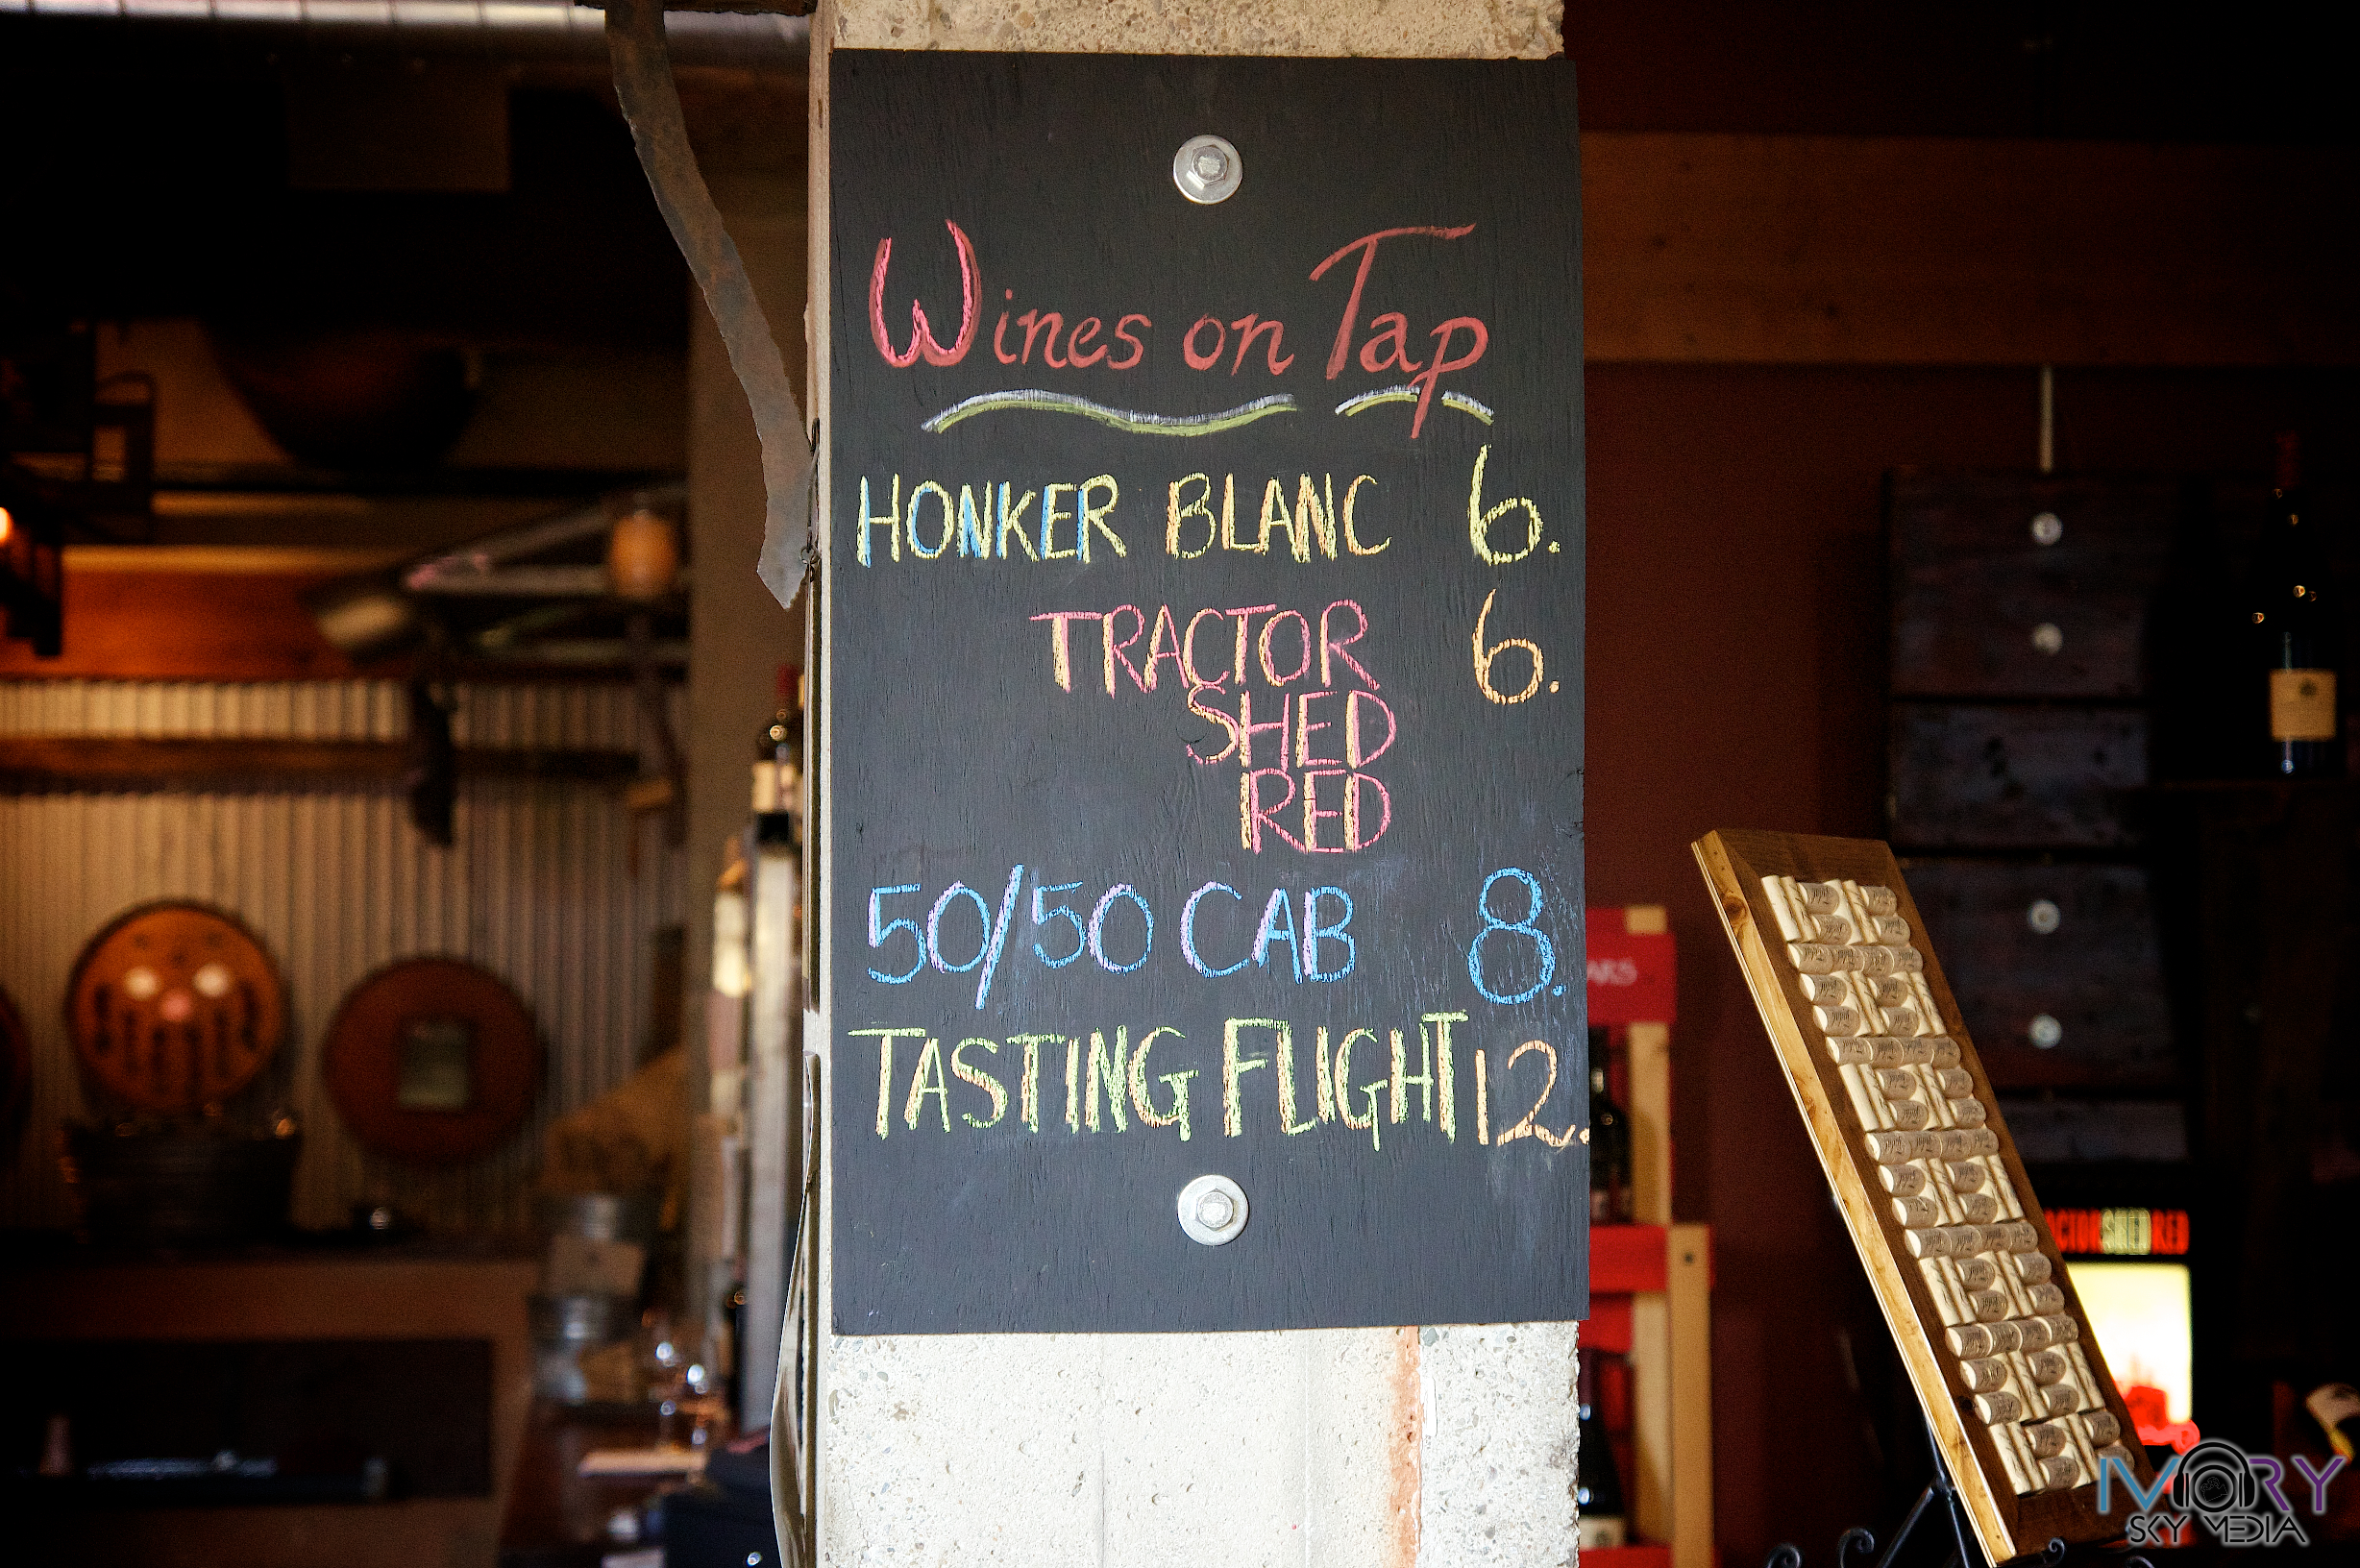 Wines on Tap
HONKER BLANC 6.
TRACTOR 6.
SHED
RED
50/50 CAB 8.
TASTING FLIGHT 12.
CTORSHEDRED
IVORY
SKY MEDIA